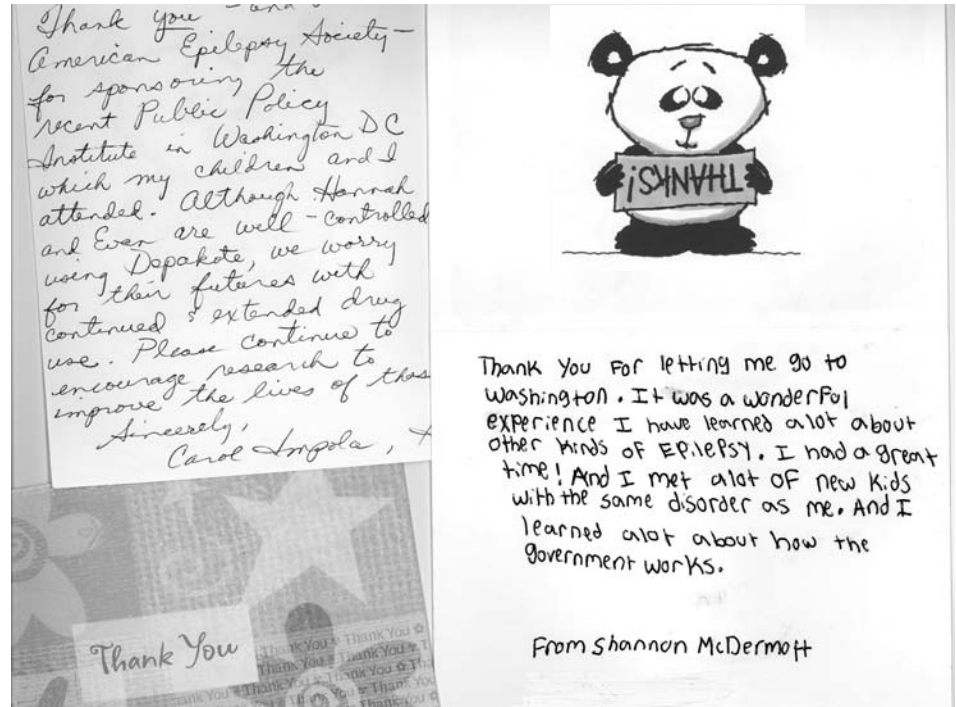 Thank you - and
American Epilepsy Society -
for sponsoring the
recent Public Policy
Institute in Washington DC
which my children and I
attended. Although Hannah
and Evan are well-controlled
using Depakote, we worry
for their futures with
continued & extended drug
use. Please continue to
encourage research to
improve the lives of thos
Sincerely,
Carol Impola,
Thank You
Thank You Thank You
Thank You Thank You
Thank You Thank You
Thank You Thank You
THANKS!
Thank You For letting me go to
Washington. It was a wonderful
experience I have learned alot about
other kinds of EPilEPSY. I had a great
time! And I met alot of new kids
with the same disorder as me. And I
learned alot about how the
government works.
From Shannon McDermott